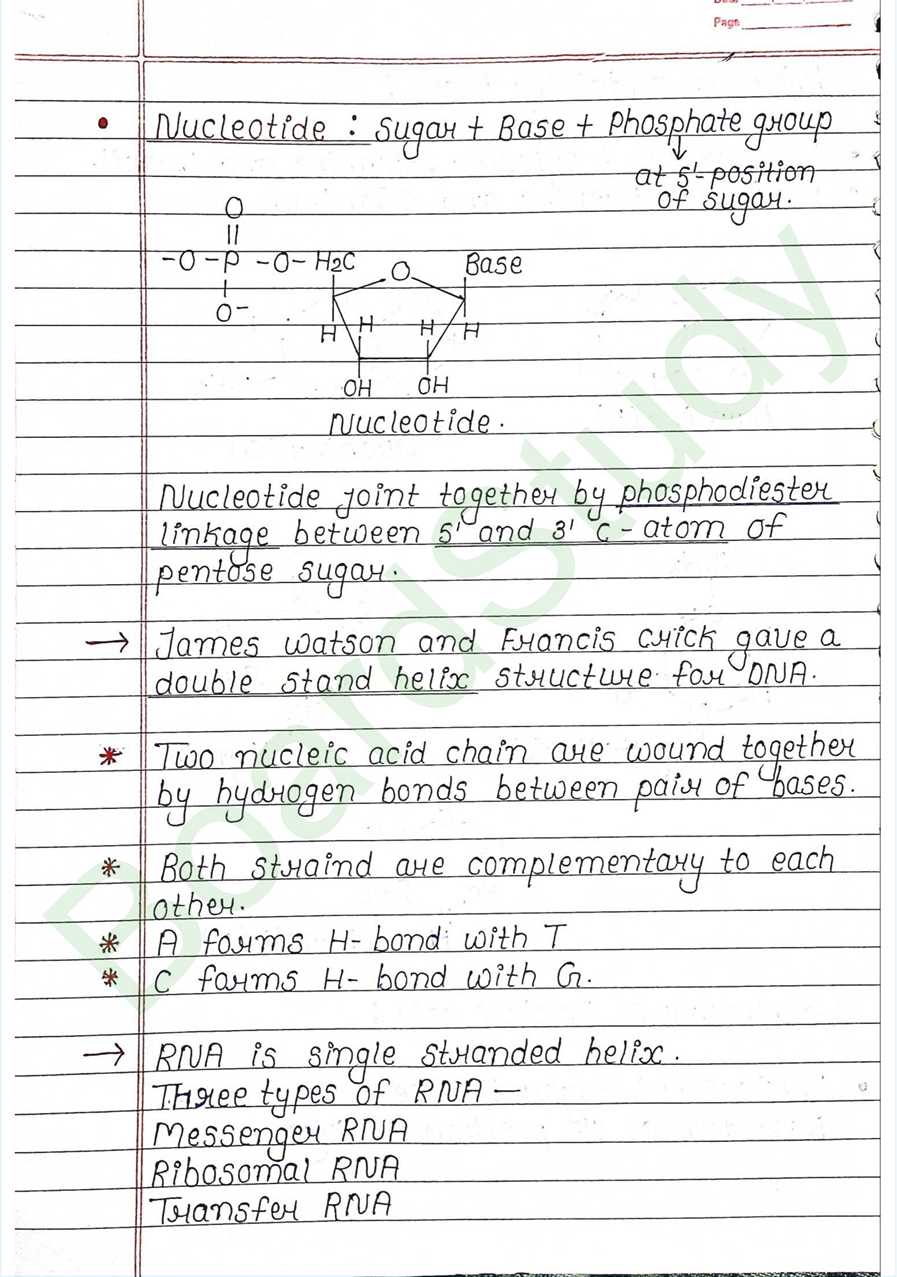 Page
Nucleotide : Sugar + Base + Phosphate group
↓
at 5'-position
of sugar.
O
||
-O-P-O-H2C O Base
|
O-
H H H H
OH OH
Nucleotide.
Nucleotide joint together by phosphodiester
linkage between 5' and 3' c-atom of
pentose sugar.
→ James watson and Francis crick gave a
double stand helix structure for DNA.
* Two nucleic acid chain are wound together
by hydrogen bonds between pair of bases.
* Both straind are complementary to each
other.
* A forms H-bond with T
* C forms H-bond with G.
→ RNA is single stranded helix.
Three types of RNA –
Messenger RNA
Ribosomal RNA
Transfer RNA
BoardStudy